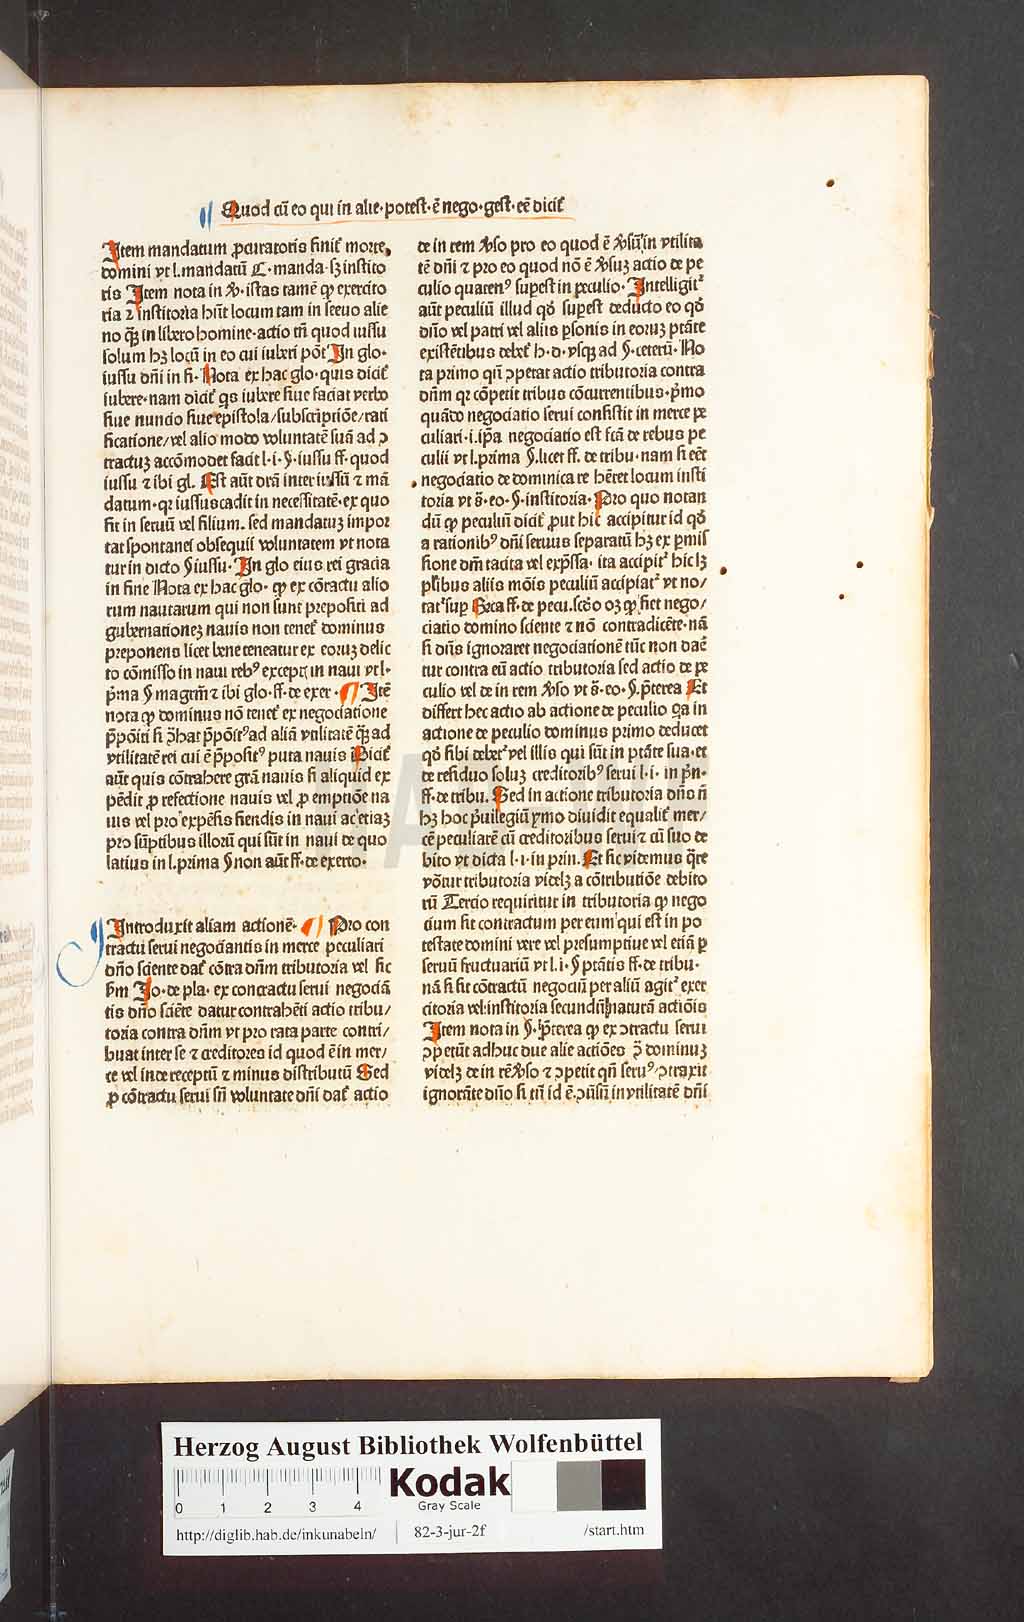 Quod cū eo qui in alie·potest·ē nego·gest·eē dicit̉
Item mandatum ꝓcuratoris finit̉ morte
domini vt l.mandatū C·manda·sꝫ instito
ris Item nota in ꝟ·istas tamē ꝙ exercito
ria ⁊ institoria hn̄t locum tam in seruo alie
no qꝫ̄ in libero homine·actio tn̄ quod iussu
solum hꝫ locū in eo cui iuberi pōt In glo·
iussu dn̄i in fi· Nota ex hac glo·quis dicit̉
iubere·nam dicit̉ qͥs iubere siue faciat verbo
siue nuncio siue epistola/subscriptiōe/rati
ficatione/vel alio modo voluntatē suā ad ↄ
tractuꝫ accōmodet facit l·i·§·iussu ff·quod
iussu ⁊ ibi gl. Est aūt drā inter iussū ⁊ mā
datum·qꝛ iussus cadit in necessitatē·ex quo
fit in seruū vel filium. sed mandatuꝫ impor
tat spontanei obsequii voluntatem vt nota
tur in dicto § iussu· In glo eius rei gracia
in fine Nota ex hac glo· ꝙ ex cōractu alio
rum nautarum qui non sunt prepositi ad
gubernationeꝫ nauis non tenet̉ dominus
preponens licet bene teneatur ex eoruꝫ delic
to cōmisso in naui rebꝰ exceptꝭ in naui vt l·
pͥma § magrm̄ ⁊ ibi glo·ff·de exer· ¶ Itē
nota ꝙ dominus nō tenet̉ ex negociatione
p̄pōiti si p̄ hac p̄pōitꝰ ad aliā vtilitatē qꝫ̄ ad
vtilitatē rei cui ē p̄positꝰ puta nauis Dicit̉
aūt quis cōtrahere grā nauis si aliquid ex
pēdit ꝓ refectione nauis vel ꝓ emptiōe na
uis vel pro expēsis fiendis in naui ac etiaꝫ
pro sūptibus illorū qui sūt in naui de quo
latius in l.prima § non aūt ff·de exerto·
Introduxit aliam actionē· ¶ Pro con
tractu serui negociantis in merce peculiari
dn̄o sciente dat̉ cōtra dn̄m tributoria vel sic
ẜm Io·de pla· ex concractu serui negociā
tis dn̄o sciēte datur contrahēti actio tribu/
toria contra dn̄m vt pro rata parte contri/
buat inter se ⁊ creditores id quod ē in mer/
ce vel inde receptū ⁊ minus distributū Sed
ꝓ cōtractu serui sn̄ voluntate dn̄i dat̉ actio
de in rem ꝟso pro eo quod ē ꝟsū in vtilita
tē dn̄i ⁊ pro eo quod nō ē ꝟsuꝫ actio de pe
culio quatenꝰ suꝑest in peculio· Intelligit̉
aūt peculiū illud qd̓ suꝑest deducto eo qd̓
dn̄o vel patri vel aliis ꝑsonis in eoruꝫ ptāte
existētibus debet̉ h·d·vsqꝫ ad §·ceterū· No
ta primo qn̄ ↄperat actio tributoria contra
dn̄m qꝛ cōpetit tribus cōcurrentibus·pͥmo
quādo negociatio serui consistit in merce pe
culiari·i.ip̄a negociatio est fc̄a de rebus pe
culii vt l.prima §.licet ff. de tribu·nam si eēt
negociatio de dominica re hēret locum insti
toria vt s̄·eo·§·institoria· Pro quo notan
dū ꝙ peculiū dicit̉ ꝓut hic accipitur id qd̓
a rationibꝰ dn̄i seruus separatū hꝫ ex ꝑmis
sione dn̄i tacita vel exp̄ssa· ita accipit̉ hic lꝫ
pl̄ibus aliis mōis peculiū accipiat̉ vt no/
tat̉ suꝑ Erca ff·de pecu.scd̄o oꝫ ꝙ fiet nego/
ciatio domino sciente ⁊ nō contradicēte·nā
si dn̄s ignoraret negociationē tūc non daē
tur contra eū actio tributoria sed actio de pe
culio vel de in rem ꝟso vt s̄·eo·§.p̄terea Et
differt hec actio ab actione de peculio qa in
actione de peculio dominus primo deducet
qd̓ sibi debet̉ vel illis qui sūt in ptāte sua·et
de residuo soluꝫ creditoribꝰ serui l·i·in pͥn·
ff·de tribu. Sed in actione tributoria dn̄s n̄
hꝫ hoc pͥuilegiū ymo diuidit equalit̉ mer/
cē peculiarē cū creditoribus serui ⁊ cū suo de
bito vt dicta l·i·in prin. Et sic videmus qͣre
vōtur tributoria videlꝫ a cōtributiōe debito
rū Tercio requiritur in tributoria ꝙ nego
cium sit contractum per eum qui est in po
testate domini vere vel presumptiue vel etiā ꝑ
seruū fructuariū vt l.i·§ ptātis ff·de tribu·
nā si sit cōtractū negociū per aliū agit̉ exer
citoria vel institoria secundū naturā actiōis
Item nota in §·p̄terea ꝙ ex ↄtractu serui
ↄpetūt adhuc due alie actiōes ↄ̄ dominuꝫ
videlꝫ de in rē ꝟso ⁊ ↄpetit qn̄ seruꝰ ↄtraxit
ignorāte dn̄o si tn̄ id ē ↄūsū in vtilitatē dn̄i
HAB-WF
Herzog August Bibliothek Wolfenbüttel
0 1 2 3 4
Kodak
Gray Scale
http://diglib.hab.de/inkunabeln/
82-3-jur-2f
/start.htm